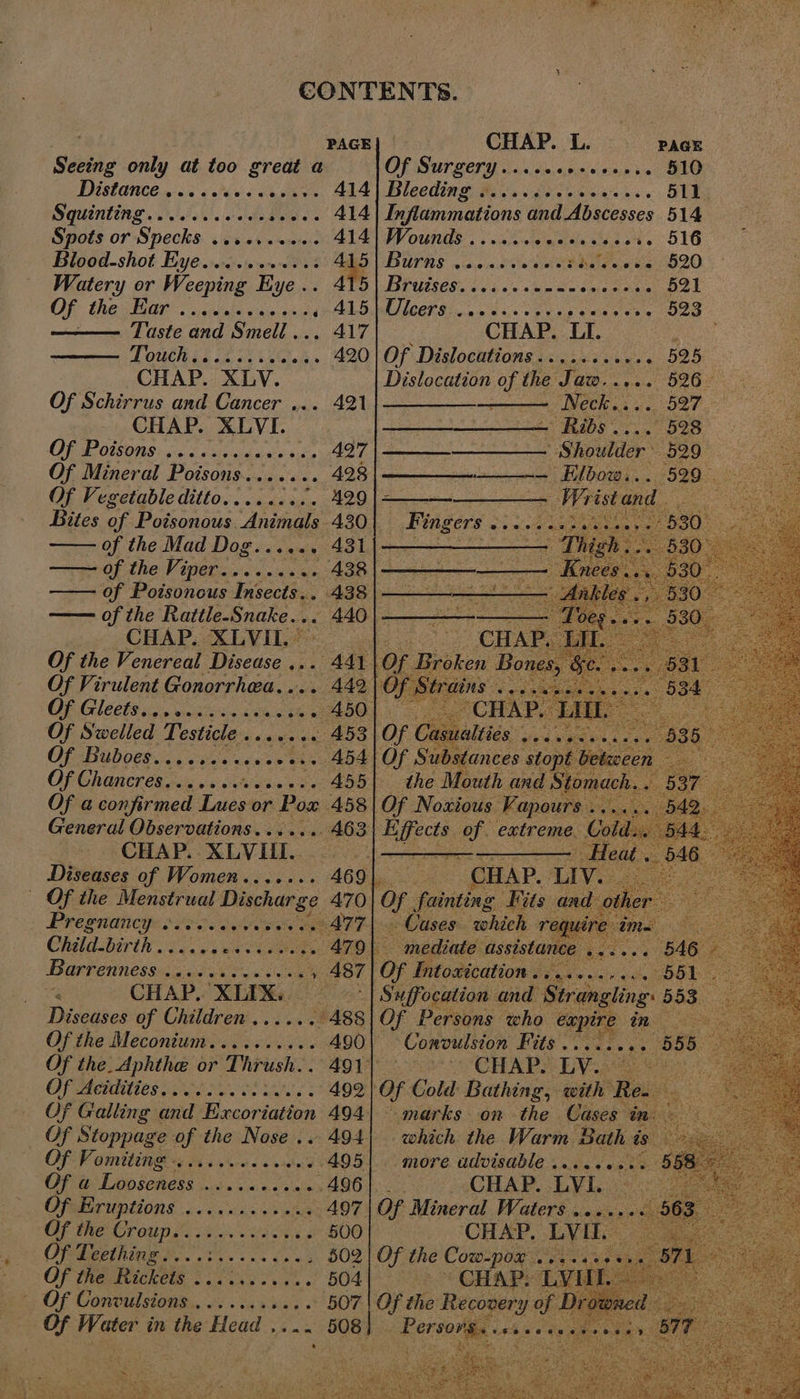 CONTENTS.
PAGE
Seeing only at too great a
Distance ............... 414
Squinting............... 414
Spots or Specks .......... 414
Blood-shot Eye........... 415
Watery or Weeping Eye .. 415
Of the Ear .............. 415
——— Taste and Smell ... 417
——— Touch............. 420
CHAP. XLV.
Of Schirrus and Cancer ... 421
CHAP. XLVI.
Of Poisons .............. 427
Of Mineral Poisons........ 428
Of Vegetable ditto......... 429
Bites of Poisonous Animals 430
—— of the Mad Dog...... 431
—— of the Viper......... 438
—— of Poisonous Insects.. 438
—— of the Rattle-Snake... 440
CHAP. XLVII.
Of the Venereal Disease ... 441
Of Virulent Gonorrhœa.... 442
Of Gleets................ 450
Of Swelled Testicle ....... 453
Of Buboes............... 454
Of Chancres.............. 455
Of a confirmed Lues or Pox 458
General Observations...... 463
CHAP. XLVIII.
Diseases of Women....... 469
Of the Menstrual Discharge 470
Pregnancy .............. 477
Child-birth .............. 479
Barrenness .............. 487
CHAP. XLIX.
Diseases of Children ...... 488
Of the Meconium.......... 490
Of the Aphthæ or Thrush.. 491
Of Acidities.............. 492
Of Galling and Excoriation 494
Of Stoppage of the Nose .. 494
Of Vomiting ............. 495
Of a Looseness ........... 496
Of Eruptions ............ 497
Of the Croup............. 500
Of Teething.............. 502
Of the Rickets ........... 504
Of Convulsions ........... 507
Of Water in the Head .... 508
CHAP. L. PAGE
Of Surgery.............. 510
Bleeding ............... 511
Inflammations and Abscesses 514
Wounds ................ 516
Burns ................. 520
Bruises................. 521
Ulcers ................. 523
CHAP. LI.
Of Dislocations........... 525
Dislocation of the Jaw..... 526
——— ——— Neck.... 527
——— ——— Ribs .... 528
——— ——— Shoulder 529
——— ——— Elbow... 529
——— ——— Wrist and
Fingers ............... 530
——— ——— Thigh... 530
——— ——— Knees... 530
——— ——— Ankles .. 530
——— ——— Toes .... 530
CHAP. LII.
Of Broken Bones, &c. .... 531
Of Strains .............. 534
CHAP. LIII.
Of Casualties ............ 535
Of Substances stopt between
the Mouth and Stomach.. 537
Of Noxious Vapours ...... 542
Effects of extreme Cold... 544
——— ——— Heat . 546
CHAP. LIV.
Of fainting Fits and other
Cases which require im-
mediate assistance ...... 546
Of Intoxication........... 551
Suffocation and Strangling: 553
Of Persons who expire in
Convulsion Fits ......... 555
CHAP. LV.
Of Cold Bathing, with Re-
marks on the Cases in
which the Warm Bath is
more advisable ......... 558
CHAP. LVI.
Of Mineral Waters ....... 563
CHAP. LVII.
Of the Cow-pox .......... 571
CHAP. LVIII.
Of the Recovery of Drowned
Persons............... 577